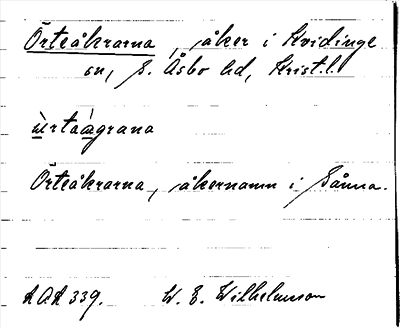 Örteåkrarna, åker i Kvidinge
sn, S. Åsbo hd, Krist.l.
ụ̀rtaágrana
Örteåkrarna, åkernamn i Sånna.
LAL 339. W. E. Wilhelmsson